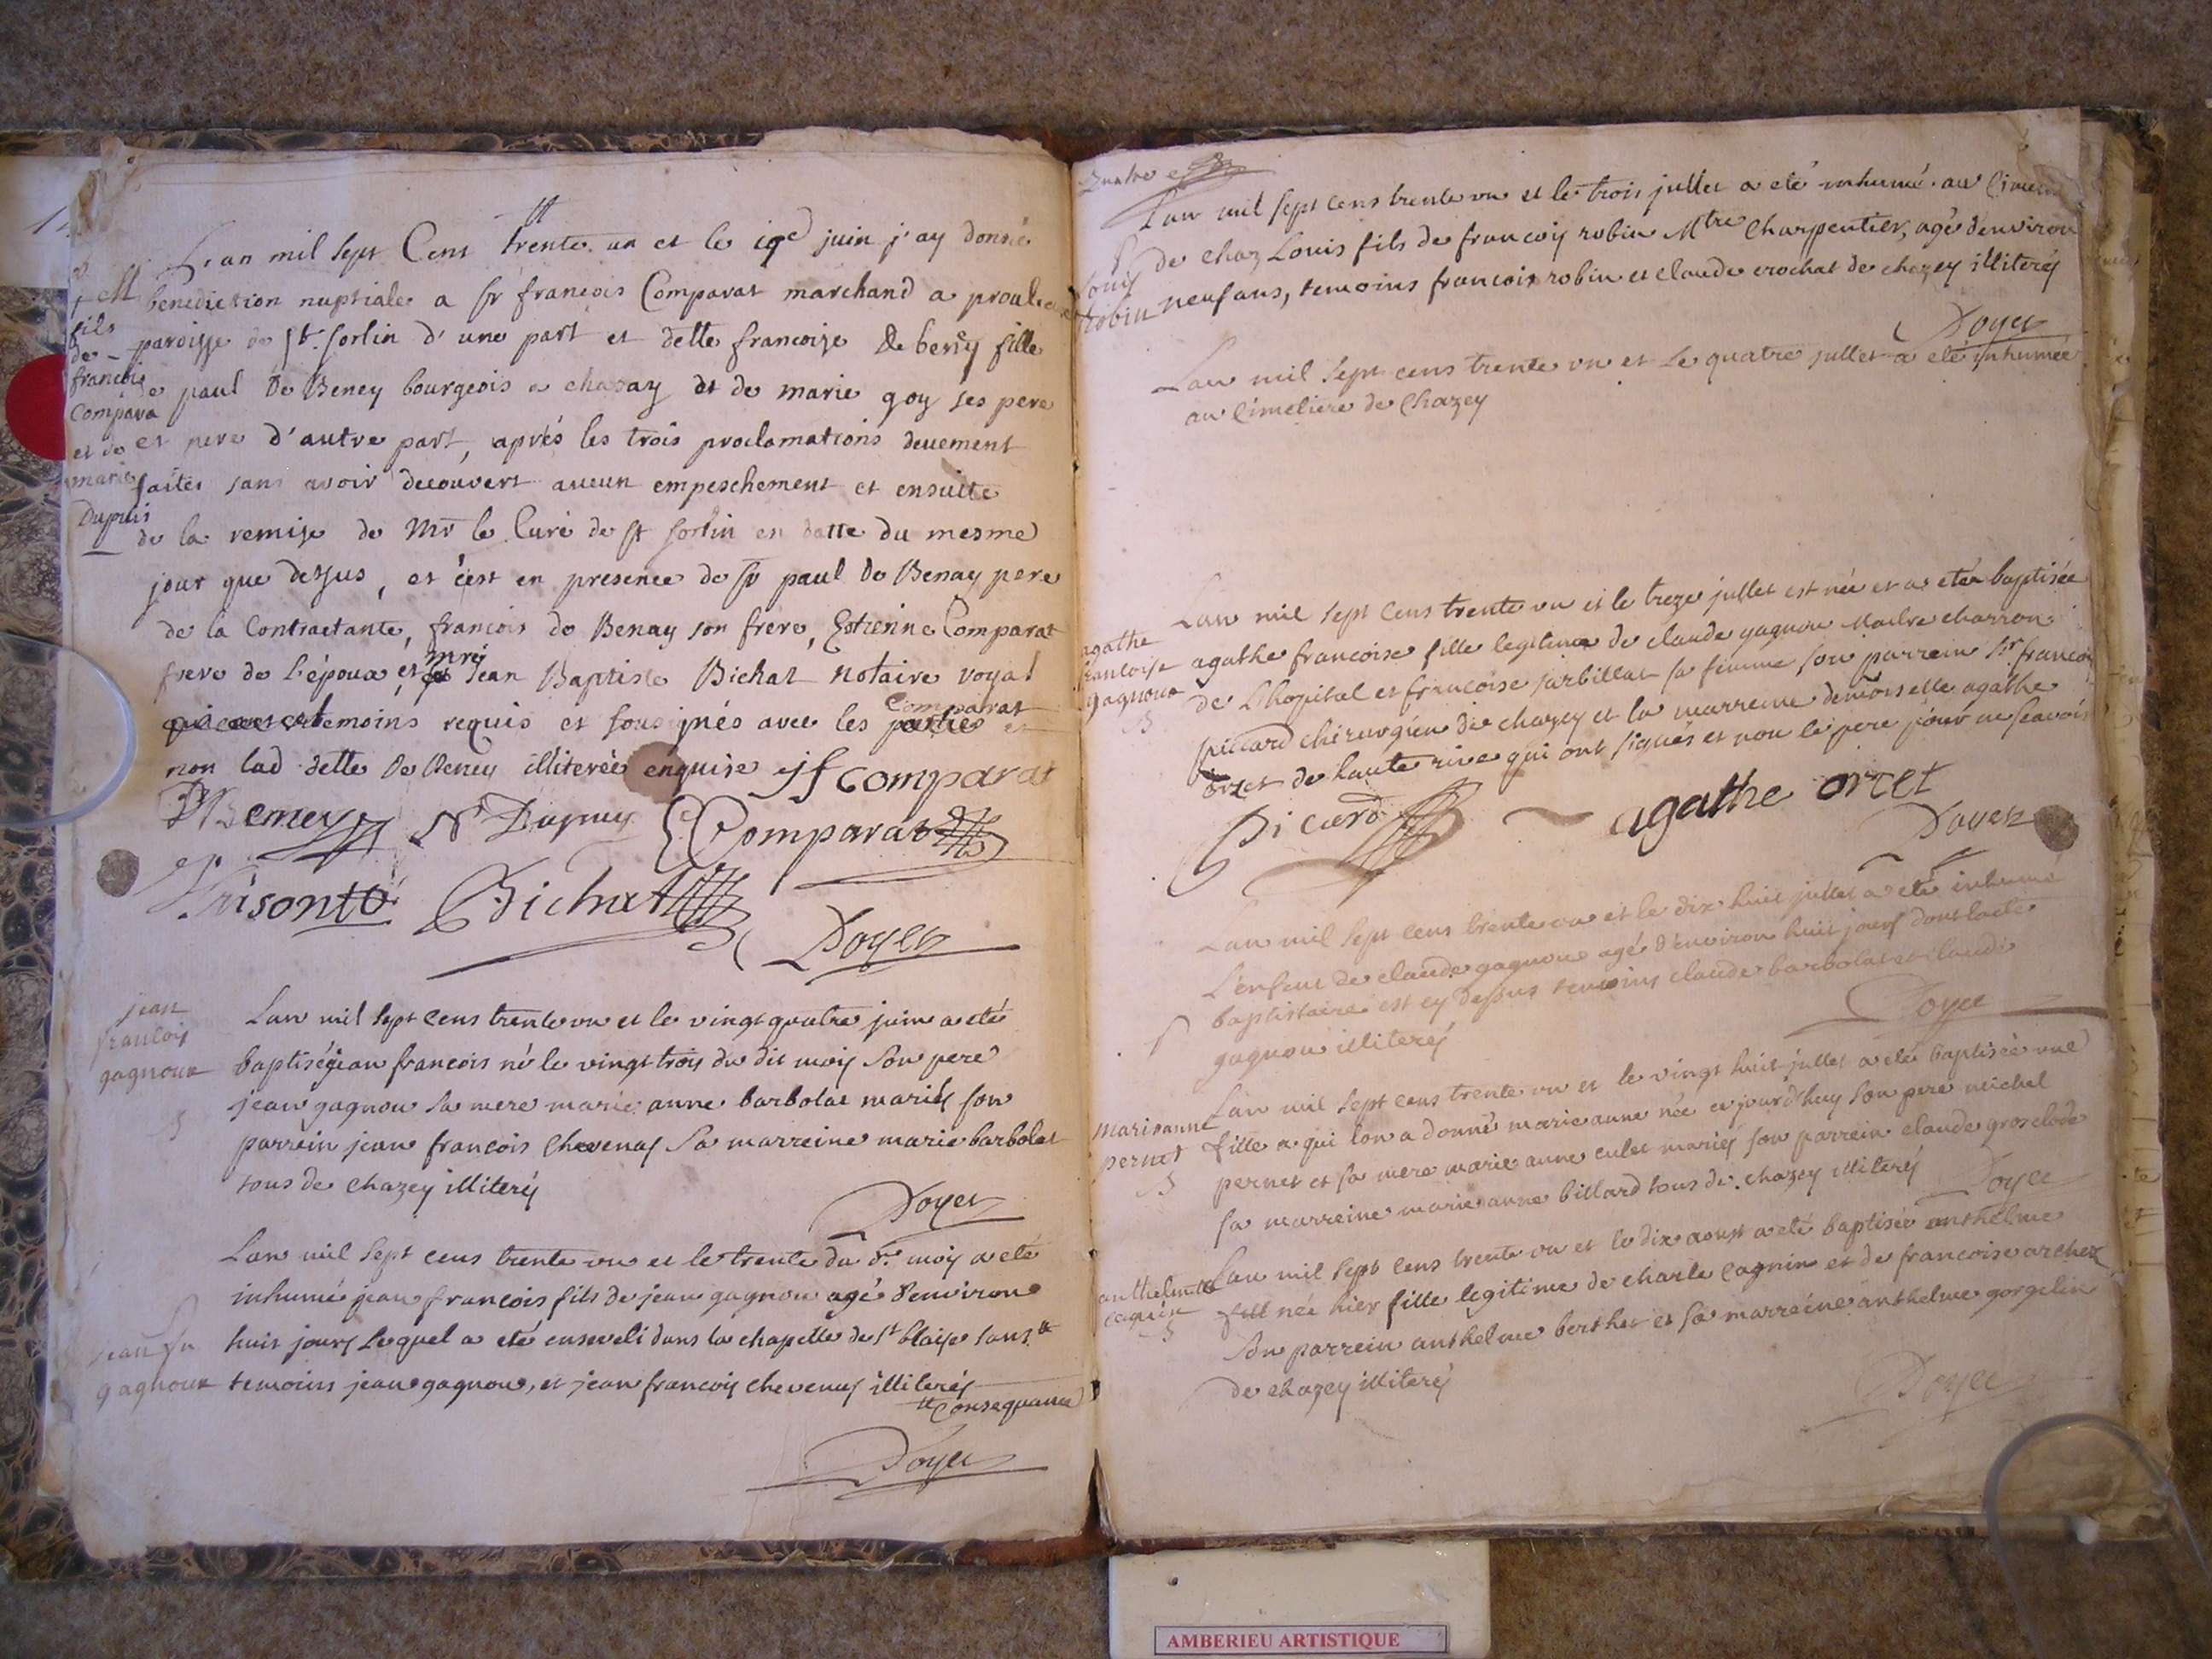 L'an mil sept Cent trente un et le 19e juin j'ay donné
benediction nuptiale a Sr françois Comparat marchand a proulieu
fils
de
françois
Compara
et de
marie
Dupuis
paroisse de St. Sorlin d'une part et delle françoise De beney fille
de paul De Beney bourgeois a chazay et de marie goy ses pere
et mere d'autre part, aprés les trois proclamations deuement
faites sans avoir decouvert aucun empeschement et ensuitte
de la remise de Mr le Curé de St Sorlin en datte du mesme
jour que dessus, et c'est en presence de Sr paul De Benay pere
de la Contractante, francois de Benay son frere, Estienne Comparat
frere de l'époux, et mre Jean Baptiste Bichat notaire royal
temoins requis et sousignés avec les Comparat
non lad. delle De Beney illiterée enquise jf comparat
Beney N Dupuy Comparat
Bichat
Doyen
jean
francois
gagnoux
B
Lan mil sept cens trente un et le vingt quatre juin a eté
baptisé jean francois né le vingt trois du dit mois son pere
jean gagnou sa mere marie anne barbolat mariés son
parrein jean francois chevenas sa marreine marie barbolat
tous de chazey illiterés
Doyen
Lan mil sept cens trente un et le trente du d. mois a eté
inhumé jean francois fils de jean gagnou agé d'environ
jean fr
gagnoux
huit jours lequel a eté enseveli dans la chapelle de St blaise sans
temoins jean gagnou, et jean francois chevenas illiterés
Consequance
Doyen
Lan mil sept cens trente un et le trois jullet a eté inhumé au
Louis
robin
de chaz Louis fils de francois robin Mtre Charpentier, agé denviron
neuf ans, temoins francois robin et claude crochat de chazey illiterés
Doyen
Lan mil sept cens trente un et le quatre jullet a eté inhumée
au cimetiere de Chazey
Lan mil sept cens trente un et le treze jullet est née et a eté baptisée
agathe
francoise
gagnoux
B
agathe francoise fille legitime de claude gagnou Maitre charron
de Lhopital et francoise jarbillat sa femme son parrein Sr. francois
piccard chirurgien de chazey et la marreine demoiselle agathe
orzet de haute rive qui ont signés et non le pere pour ne scavoir
Picard agathe orcet
Doyen
Lan mil sept cens trente un et le dix huit jullet a eté inhumé
L'enfent de claude gagnou agé d'environ huit jours dont lacte
baptistaire est cy dessus temoins claude barbolat et claude
gagnou illiterés
Doyen
mariaanne
pernet
B
Lan mil sept cens trente un et le vingt huit jullet a eté baptisée une
fille a qui lon a donné marie anne née ajourdhuy son pere michel
pernet et sa mere marie anne culet mariés son parrein claude groselode
sa marreine marie anne billard tous de chazey illiterés
Doyen
anthelmette
cagnin
B
Lan mil sept cens trente un et le dix aoust a eté baptisée anthelme
née hier fille legitime de charle cagnin et de francoise archer
son parrein anthelme berthet et sa marreine anthelme gorgelin
de chazey illiterés
Doyen
AMBERIEU ARTISTIQUE